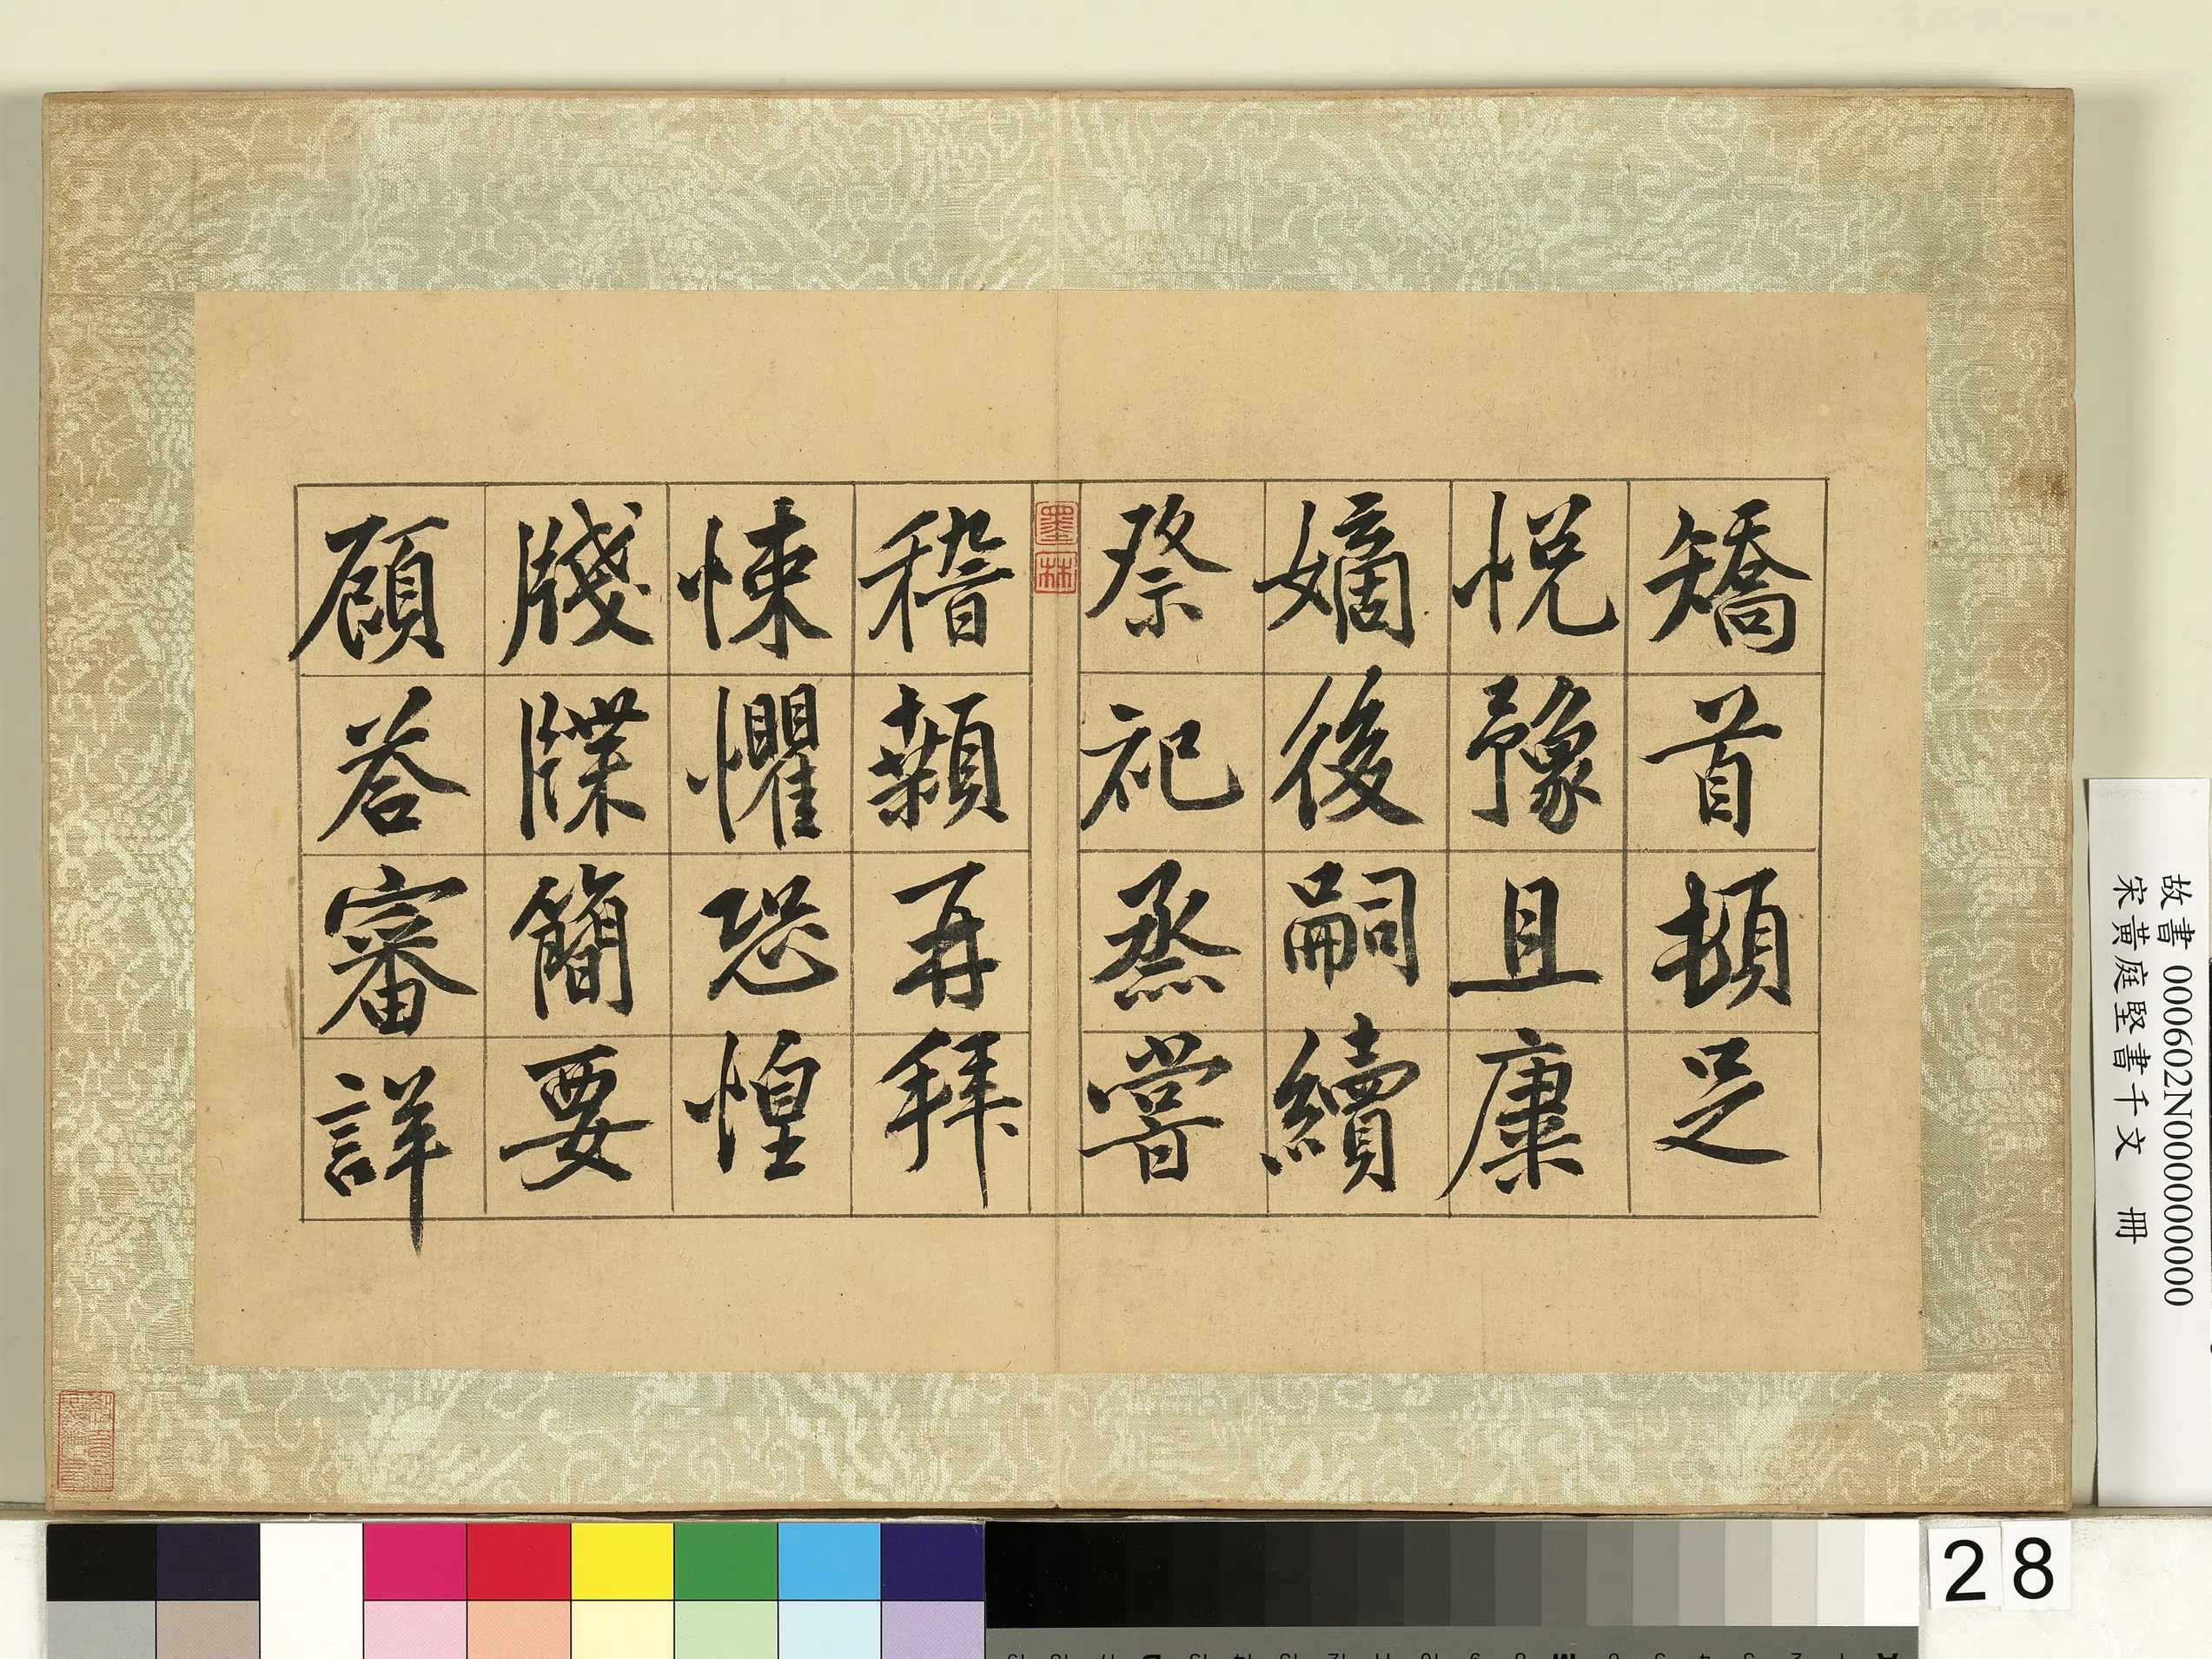 矯首頓足
悦豫且康
嫡後嗣續
祭祀烝嘗
稽顙再拜
悚懼恐惶
牋牒簡要
顧荅審詳
墨林
故書 000602N000000000
宋黃庭堅書千文 冊
28